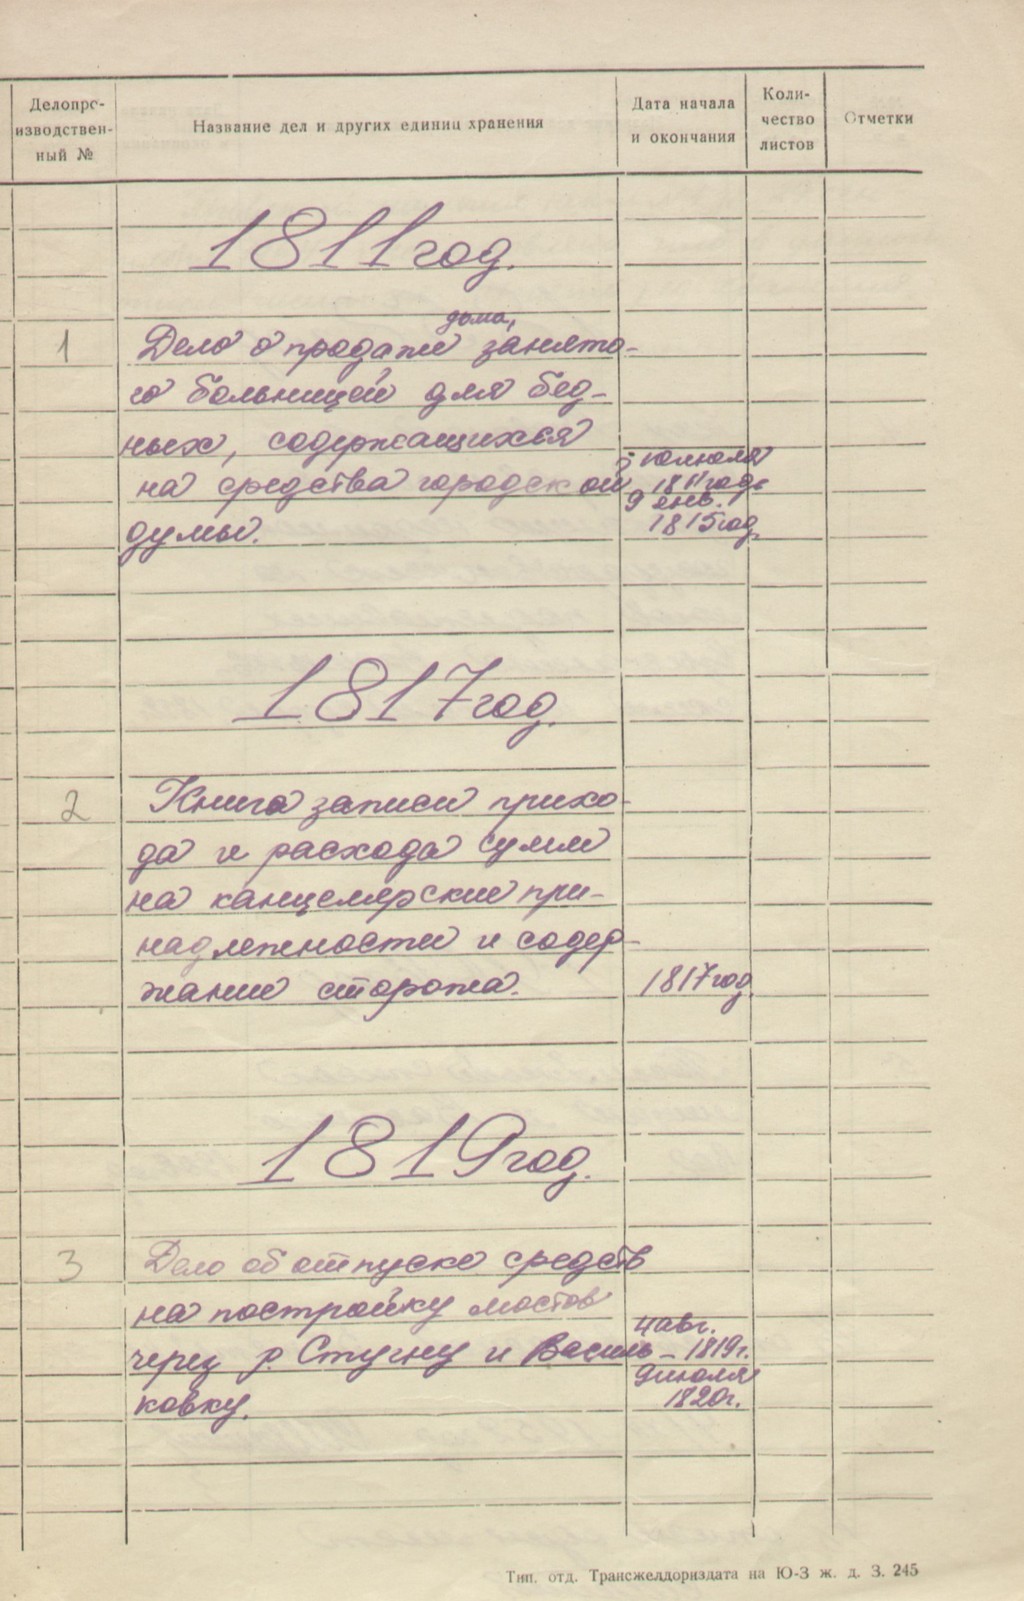 Делопро-
изводствен-
ный №
Название дел и других единиц хранения
Дата начала
и окончания
Коли-
чество
листов
Отметки
1811 год.
дома,
1 Дело о продаже занято-
го больницей для бед-
ных, содержащихся
на средства городской
думы.
июля
1811 года
9 янв.
1815 год
1817 год.
2 Книга записи прихо-
да и расхода сумм
на канцелярские при-
надлежности и содер-
жание сторожа. 1817 год
1819 год.
3 Дело об отпуске средств
на постройку мостов
через р. Стугну и Василь-
ковку.
4 авг.
1819 г.
9 июля
1820 г.
Тип. отд. Трансжелдориздата на Ю-З ж. д. З. 245